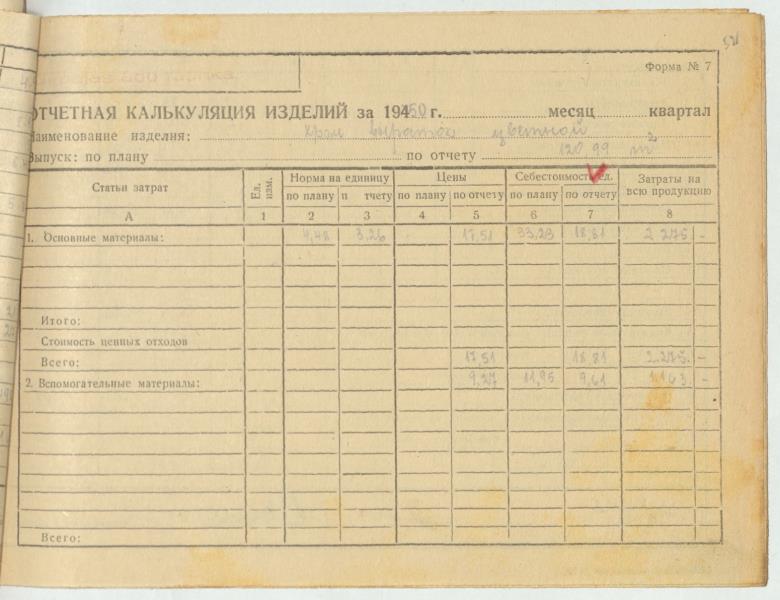 Форма № 7
ОТЧЕТНАЯ КАЛЬКУЛЯЦИЯ ИЗДЕЛИЙ за 194 50 г. месяц квартал
Наименование изделия: хром цветной
Выпуск: по плану по отчету 120 99 m²
Статьи затрат Ед. изм. Норма на единицу Цены Себестоимость ед. Затраты на всю продукцию
по плану п тчету по плану по отчету по плану по отчету
А 1 2 3 4 5 6 7 8
1. Основные материалы: 4,48 3,26 17,51 33,23 18,81 2 275 -
Итого:
Стоимость ценных отходов
Всего: 17,51 18,81 2.275 -
2. Вспомогательные материалы: 9,27 11,95 9,61 1163 -
Всего: